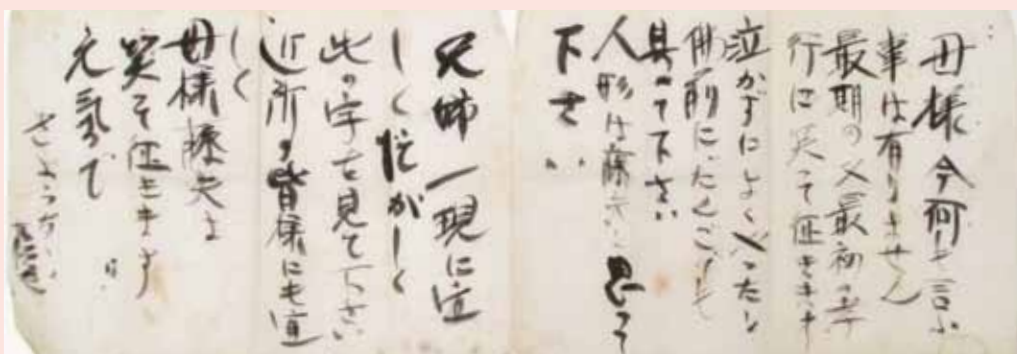 母様今何も言ふ
事は有りません
最期の又最初の孝
行に笑って征きます
泣かずによくやったと
佛前にだんごでも
具へて下さい
人形は藤夫と思って
下さい
兄姉一現に宜
しく忙がしく
此の字を見て下さい
近所の皆様にも宜
しく
母様藤夫は
笑て征きます
元氣で
さようなら